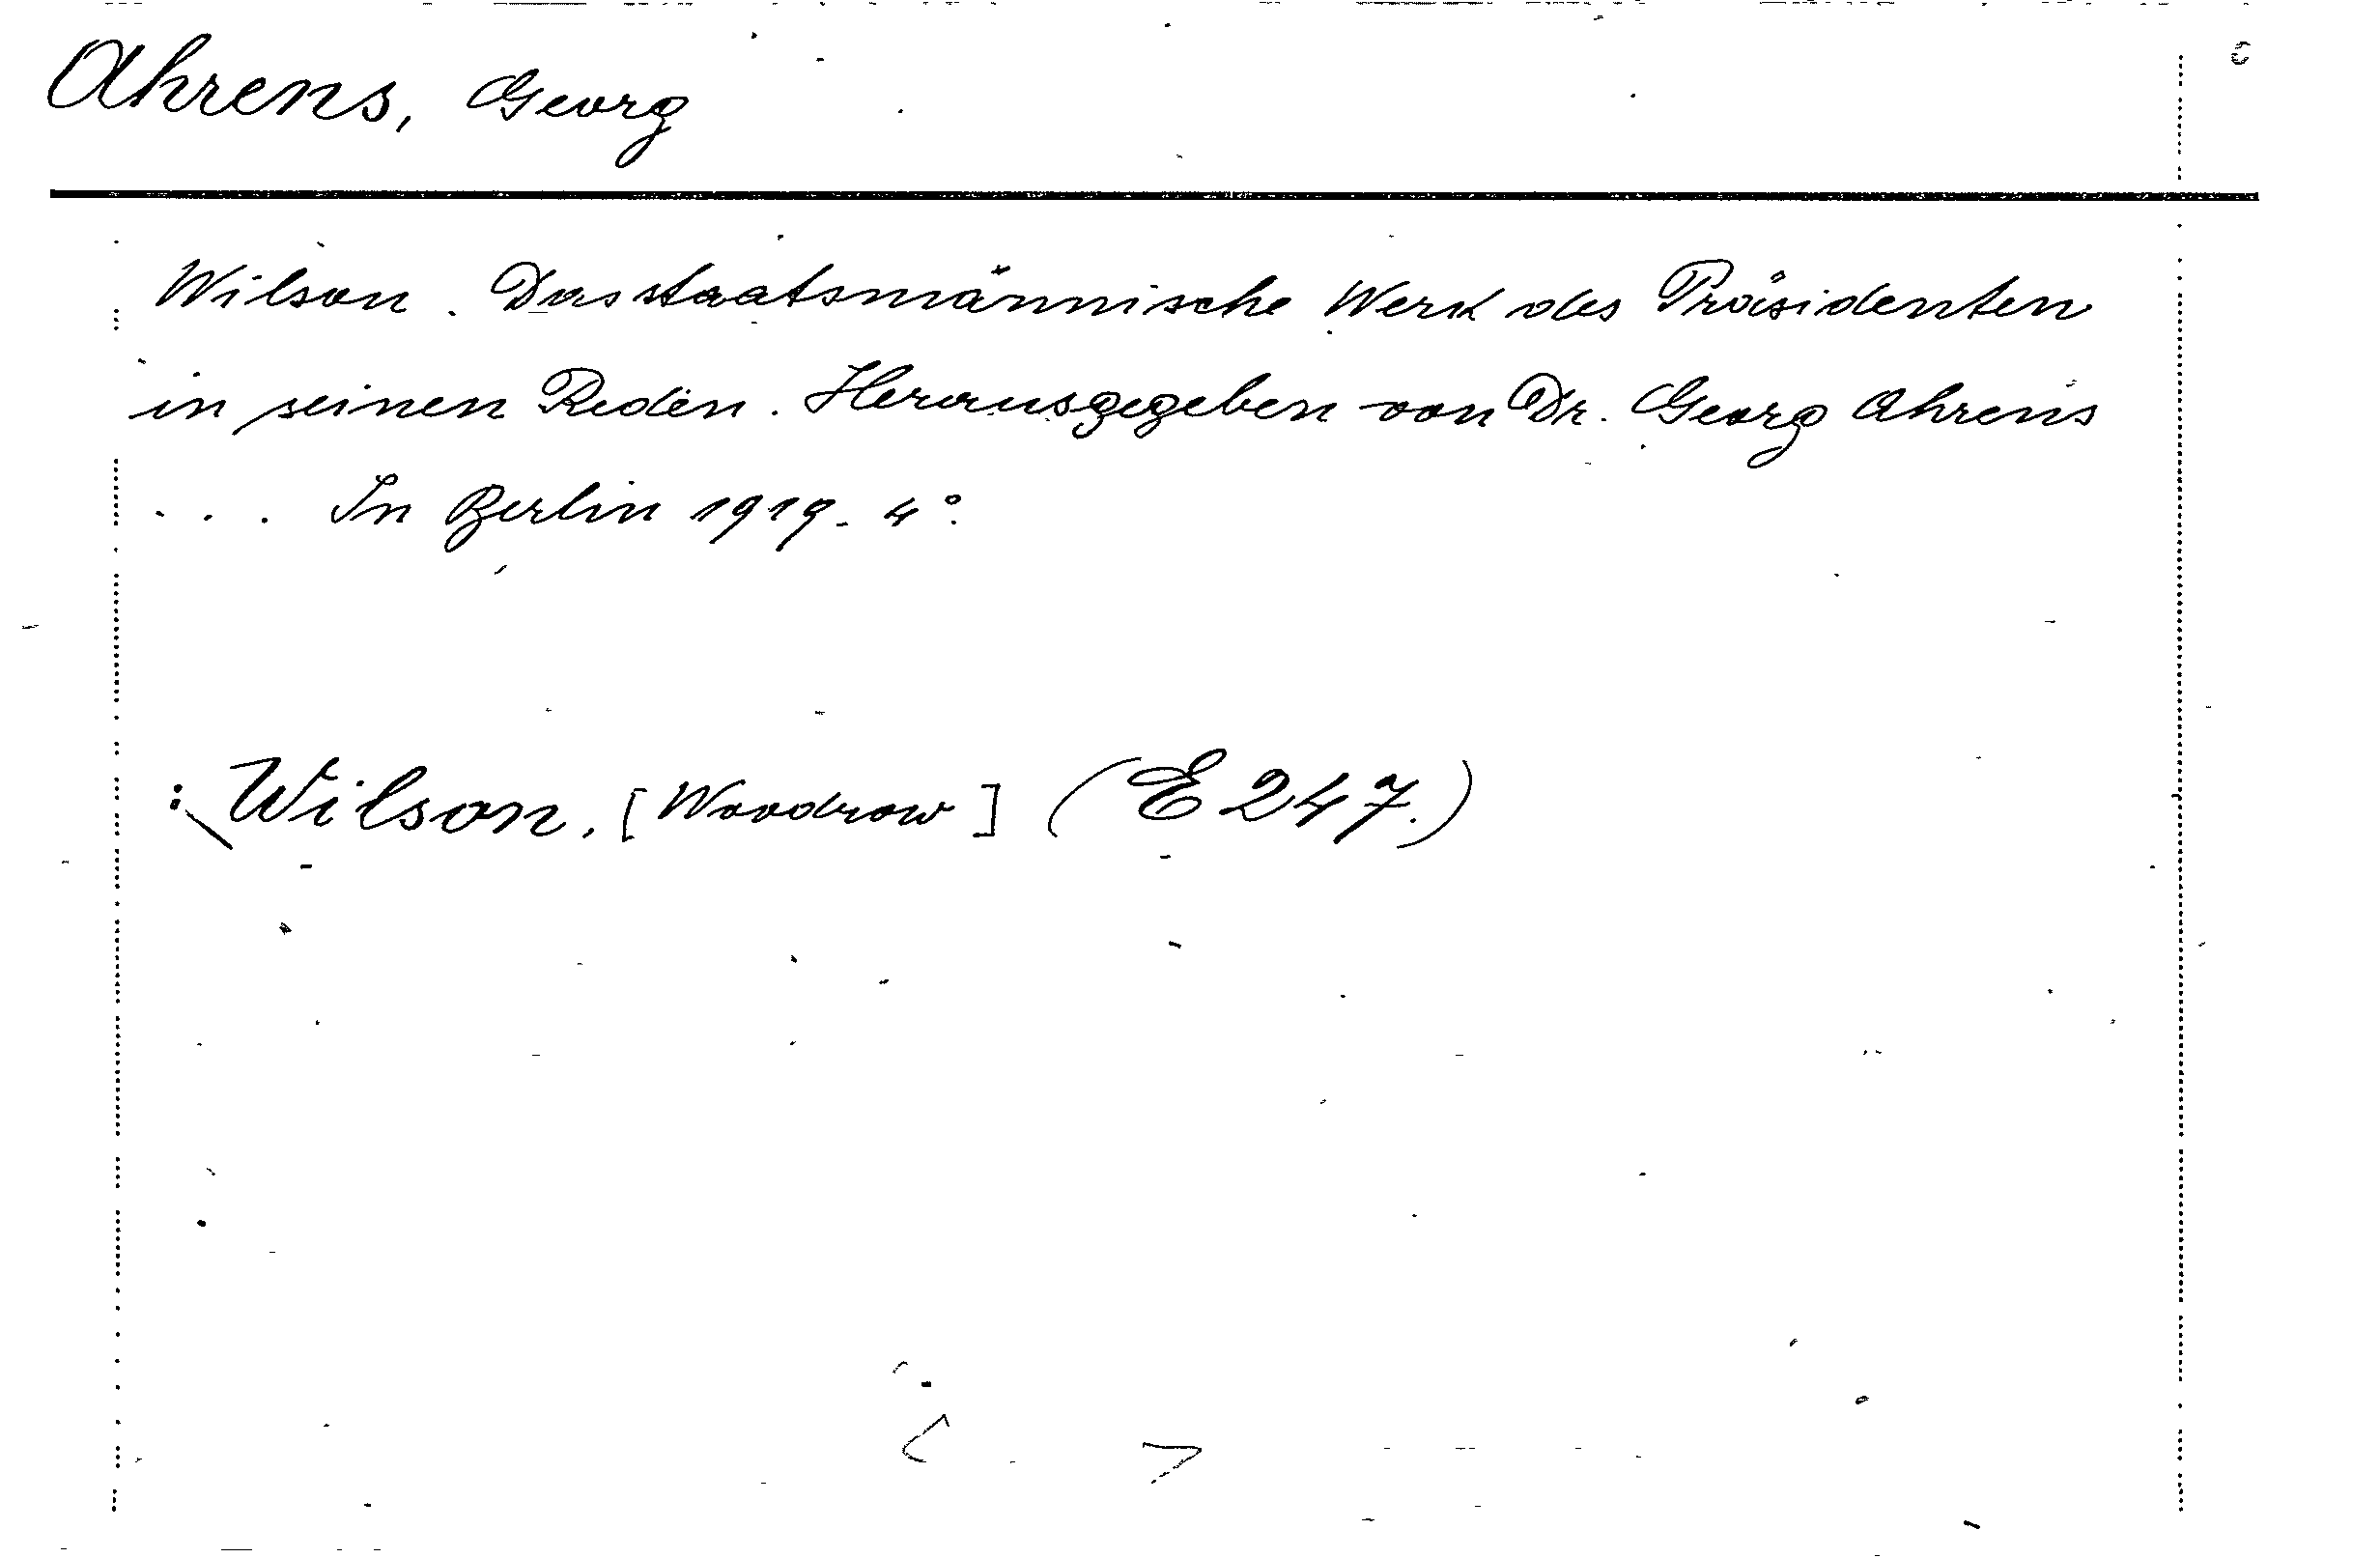 Ahrens, Georg
Wilson. Das staatsmännische Werk des Präsidenten
in seinen Reden. Herausgegeben von Dr. Georg Ahrens
... In Berlin 1919. 4°.
: Wilson, [Woodrow] (E 247.)